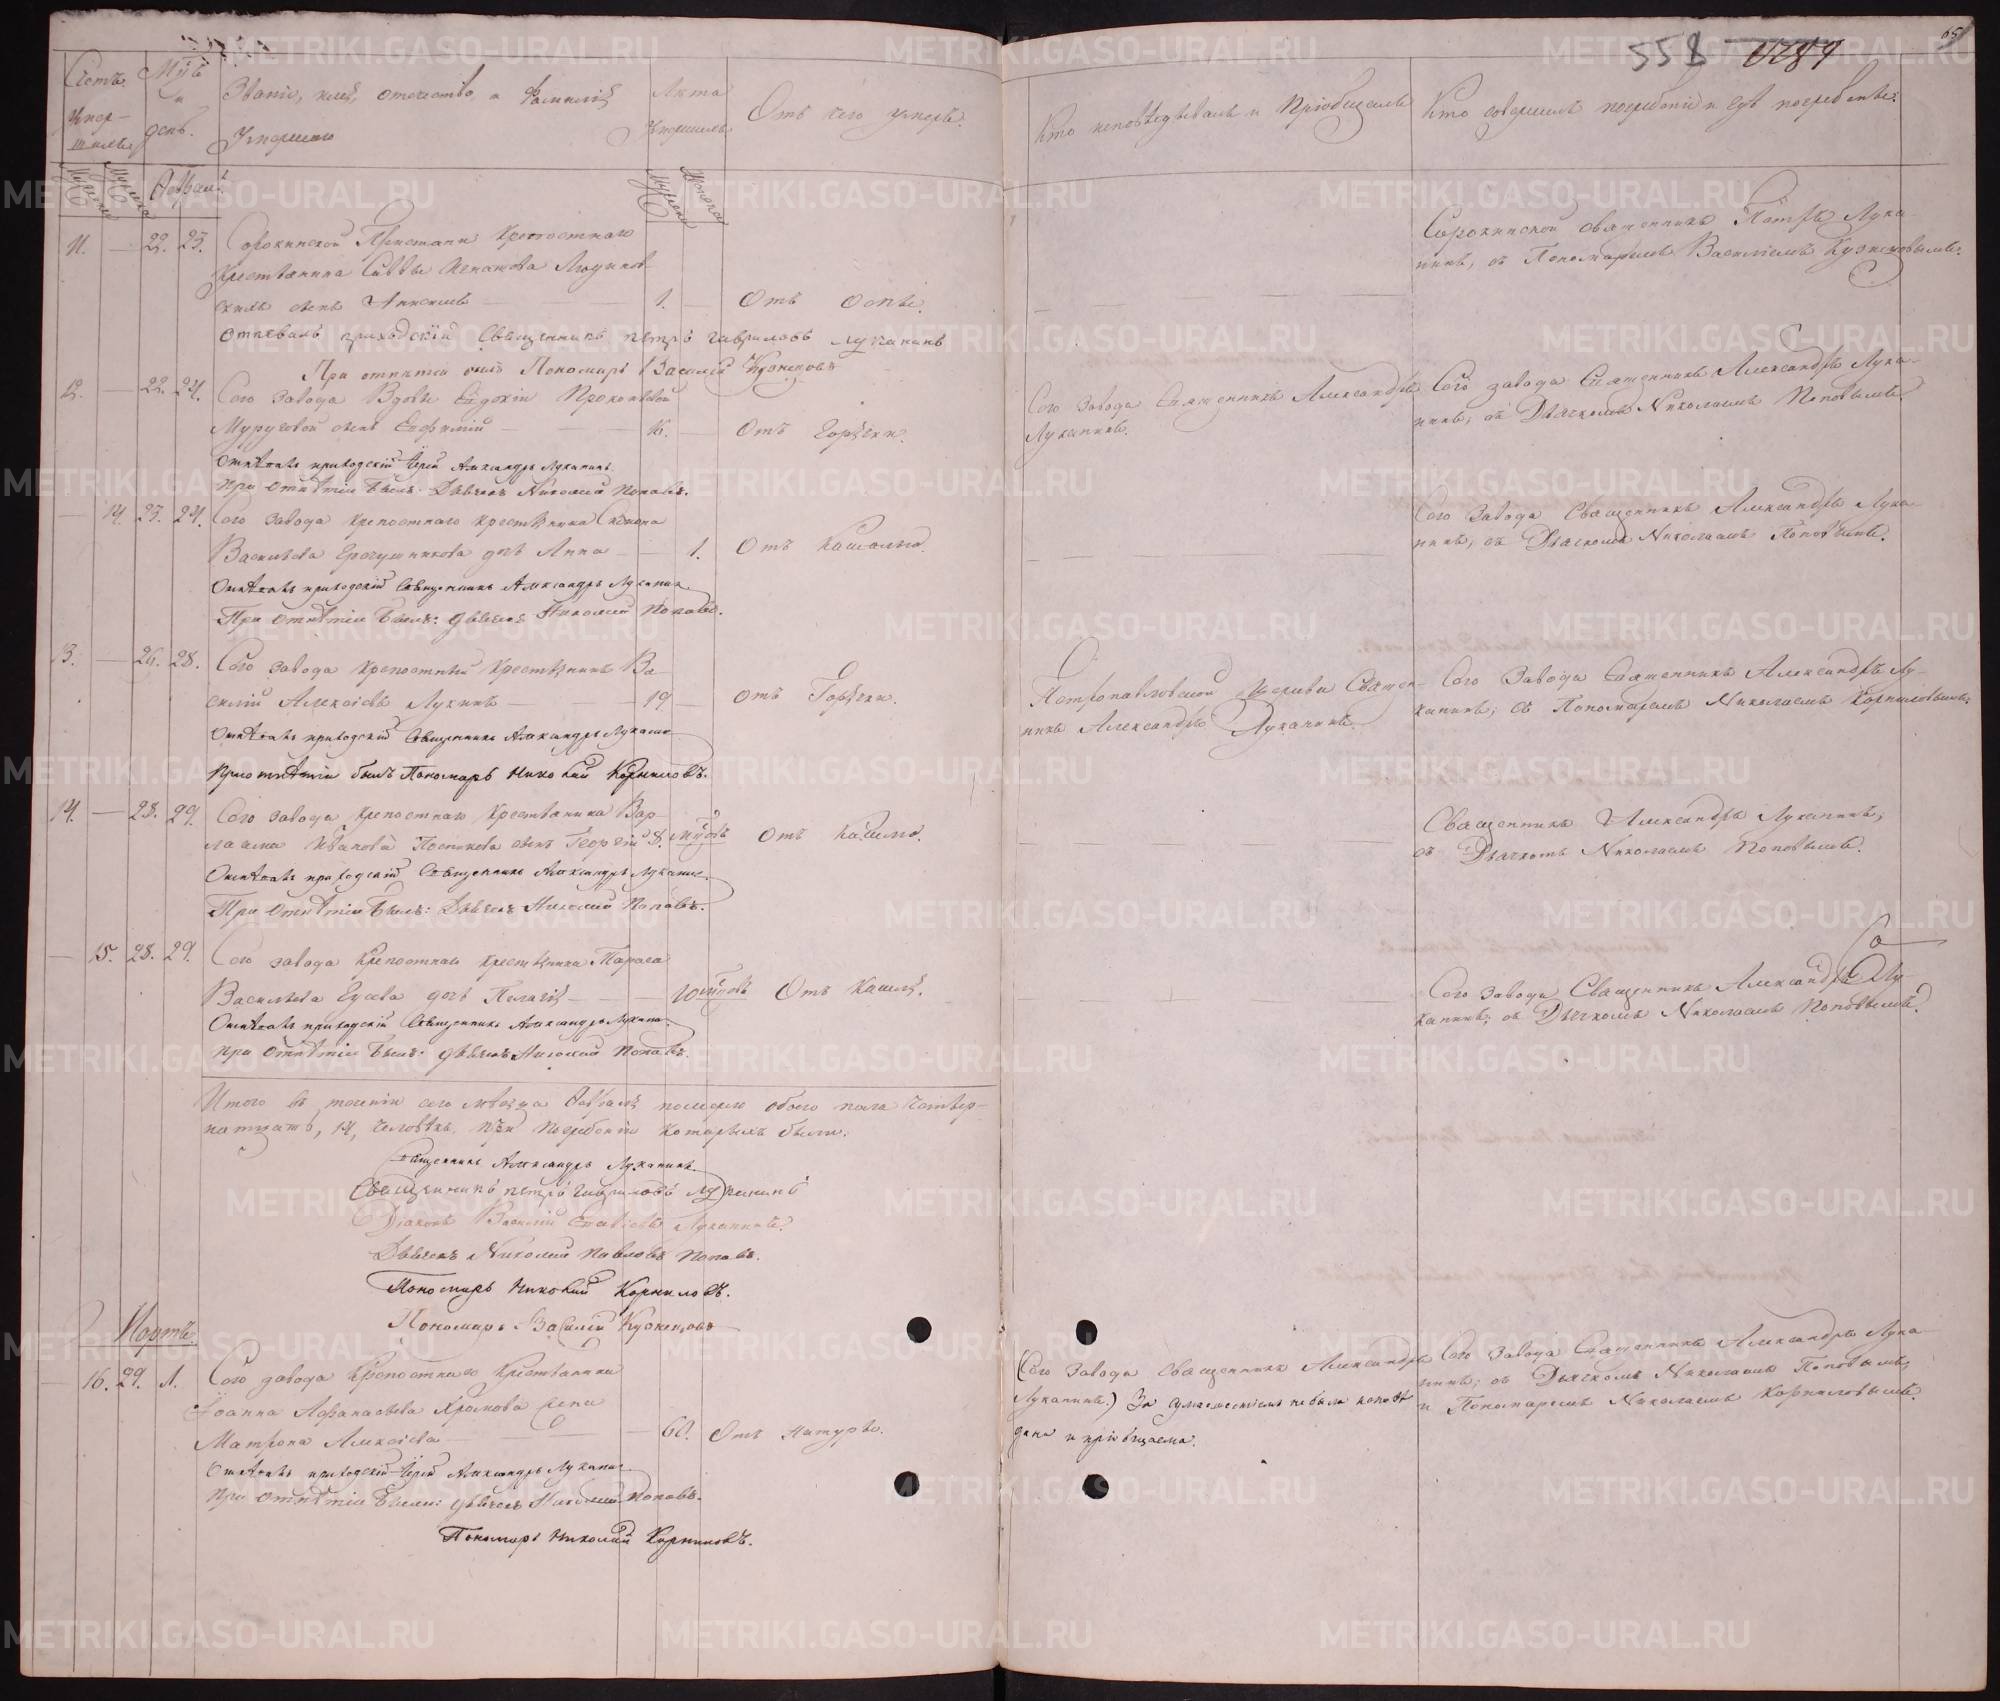 558 1789
65
Счетъ умер-шихъ
Мѣс. и день.
Званіе, имя, отечество, и Фамилія Умершаго
Лѣта Умершихъ
Отъ чего умеръ.
Кто исповѣдывалъ и Пріобщалъ
Кто совершилъ погребеніе и гдѣ погребены.
Мужеска Женска
11. — 22. 23. Сорокинской Пристани Крепостнаго
Крестьянина Саввы Игнатова
сынъ Анисимъ — 1. — Отъ оспы.
Отпевалъ приходскій Священникъ петръ гавриловъ луканинъ
При отпѣтіи былъ Пономарь Василій Кузнецовъ
Сорокинской священникъ Петръ Лука-
нинъ, съ Пономаремъ Василіемъ Кузнецовымъ.
12. — 22. 24. Сего завода Вдовы Евдокіи Прокопьевой
сынъ Евфимій — Отъ Горячки.
Отпѣвалъ приходскій Іерей Александръ Луканинъ.
При Отпѣтіи Былъ: Дьячекъ Николай Поповъ.
Сего завода Священникъ Александръ
Луканинъ.
Сего завода Священникъ Александръ Лука-
нинъ, съ Дьячкомъ Николаемъ Поповымъ.
— 14. 23. 24. Сего завода крепостнаго крестьянина Симона
Васильева дочь Анна — 1. Отъ Кашлю.
Отпѣвалъ приходскій Священникъ Александръ Луканинъ
При Отпѣтіи Былъ: дьячекъ Николай Поповъ.
Сего Завода Священникъ Александръ Лука-
нинъ, съ Дьячкомъ Николаемъ Поповымъ.
13. — 26. 28. Сего завода крепостный крестьянинъ Ва-
силій Алексѣевъ Лукинъ — 19 — отъ Горячки.
Отпѣвалъ приходскій Священникъ Александръ Луканинъ
При отпѣтіи былъ Пономарь Николай Корниловъ.
Петропавловской церкви Священ-
никъ Александръ Луканинъ.
Сего Завода Священникъ Александръ Лу-
канинъ; съ Пономаремъ Николаемъ Корниловымъ.
14. — 28. 29. Сего завода крепостнаго Крестьянина Вар-
лаама Иванова Постникова сынъ Георгій 8. мѣсяцовъ отъ кашлю.
Отпѣвалъ приходскій Священникъ Александръ Луканинъ.
При Отпѣтіи Былъ: Дьячекъ Николай Поповъ.
Священникъ Александръ Луканинъ,
съ Дьячкомъ Николаемъ Поповымъ.
— 15. 28. 29. Сего завода Крепостнаго крестьянина Тараса
Васильева Гусева дочь Пелагія — 10 мѣсяцовъ Отъ кашля.
Отпѣвалъ приходскій Священникъ Александръ Луканинъ.
При Отпѣтіи Былъ: дьячекъ Николай Поповъ.
Сего завода Священникъ Александръ Лу-
канинъ; съ Дьячкомъ Николаемъ Поповымъ.
Итого въ теченіи сего мѣсяца Февраля померло обоего пола четыр-
натцать, 14, человѣкъ. При погребеніи которыхъ были.
Священникъ Александръ Луканинъ
Священникъ петръ гавриловъ луканинъ
Діаконъ Василій Луканинъ.
Дьячекъ Николай Павловъ Поповъ.
Пономарь Николай Корниловъ.
Пономарь Василій Кузнецовъ
Мартъ.
— 16. 29. 1. Сего завода Крепостнаго Крестьянина
Іоанна Афанасьева Хромова жена
Матрона Алексѣева — 60. Отъ натуры.
Отпѣвалъ приходскій Іерей Александръ Луканинъ
При Отпѣтіи Были: дьячекъ Николай Поповъ.
Пономарь Николай Корниловъ.
(Сего Завода Священникъ Александръ
Луканинъ.) За не была исповѣ
дана и пріобщаема.
Сего Завода Священникъ Александръ Лука-
нинъ; съ Дьячкомъ Николаемъ Поповымъ,
и Пономаремъ Николаемъ Корниловымъ.
METRIKI.GASO-URAL.RU